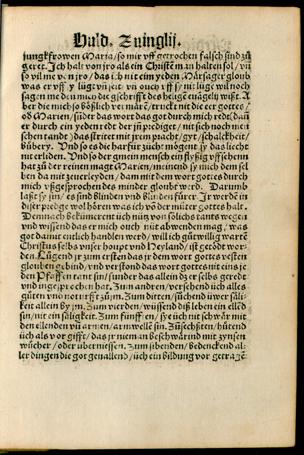 Huld. Zuinglij.
jungkfrowen Maria/so mir vff getrochen falsch sind zů
geret. Ich halt von jro als ein Christēman halten sol/ vn
so vil me von jro/ das ich nit ein yeden Märsager gloub
was er vff y lügen
sagen me dem nüt die gschrifft des heligē engels wißt. A
ber die mich so bößlich vermärē/ truckt nit die eer gottes/
ob Marien/ sunder das wort das gott durch mich redt/ das
er durch ein yeden redt der jn prediget/ nit sich noch men
schen tandt) das stritet mit jrem pracht/ gyt/ schalckheit/
bübery. Vnd so es die harfür zücht mögend sy das liecht
nit erliden. Vnd so der gmein mensch ein flyßig vffsehenn
hat zů der reinen magt Marien/ meinend sy mich dem sel
ben da mit zeuerleyden/ damit dem wort gottes durch
mich vßgesprochen des minder gloubt werd. Darumb
laßt sy sin/ es sind blinden vnd blinden fürer. Ir werdē in
diser predge wol hören was ich vō der můter gottes halt.
Demnach bekümerent üch nütz von solichs tants wegen
vnd wissend das er mich ouch nüt abwenden mag/ was
got da mit entlich handlen werd/ will ich gůtwillig wartē
Christus selbs vnser houpt vnd Heyland/ ist getödt wor
den. Lügend jr zum ersten das jr dem wort gottes vesten
glouben gebind/ vnd verstond das wort gottes nit eins je
den Pfaffen tant sin/ sunder das allein dz er selbs geredt
vnd ingesprochen hat. Zum andren/ versehend üch alles
gůten vnd notturfft zů jm. Zum dritten/ sůchend üwer säli
keit allein by jm. Zum vierden/ wüssend diß leben ein ellēd
sin/ nit ein säligkeit. Zum fünfften/ sye üch nit schwär mit
den ellenden vn armen/ armwellē sin. Zů sechsten/ hütend
üch als vor gifft/ das jr nieman beschwärind mit zynsen
wůcher/ oder übernissen. Zum sibenden/ bedenckend al
ler dingen die got geuallend/ üch ein bildung vor getragē